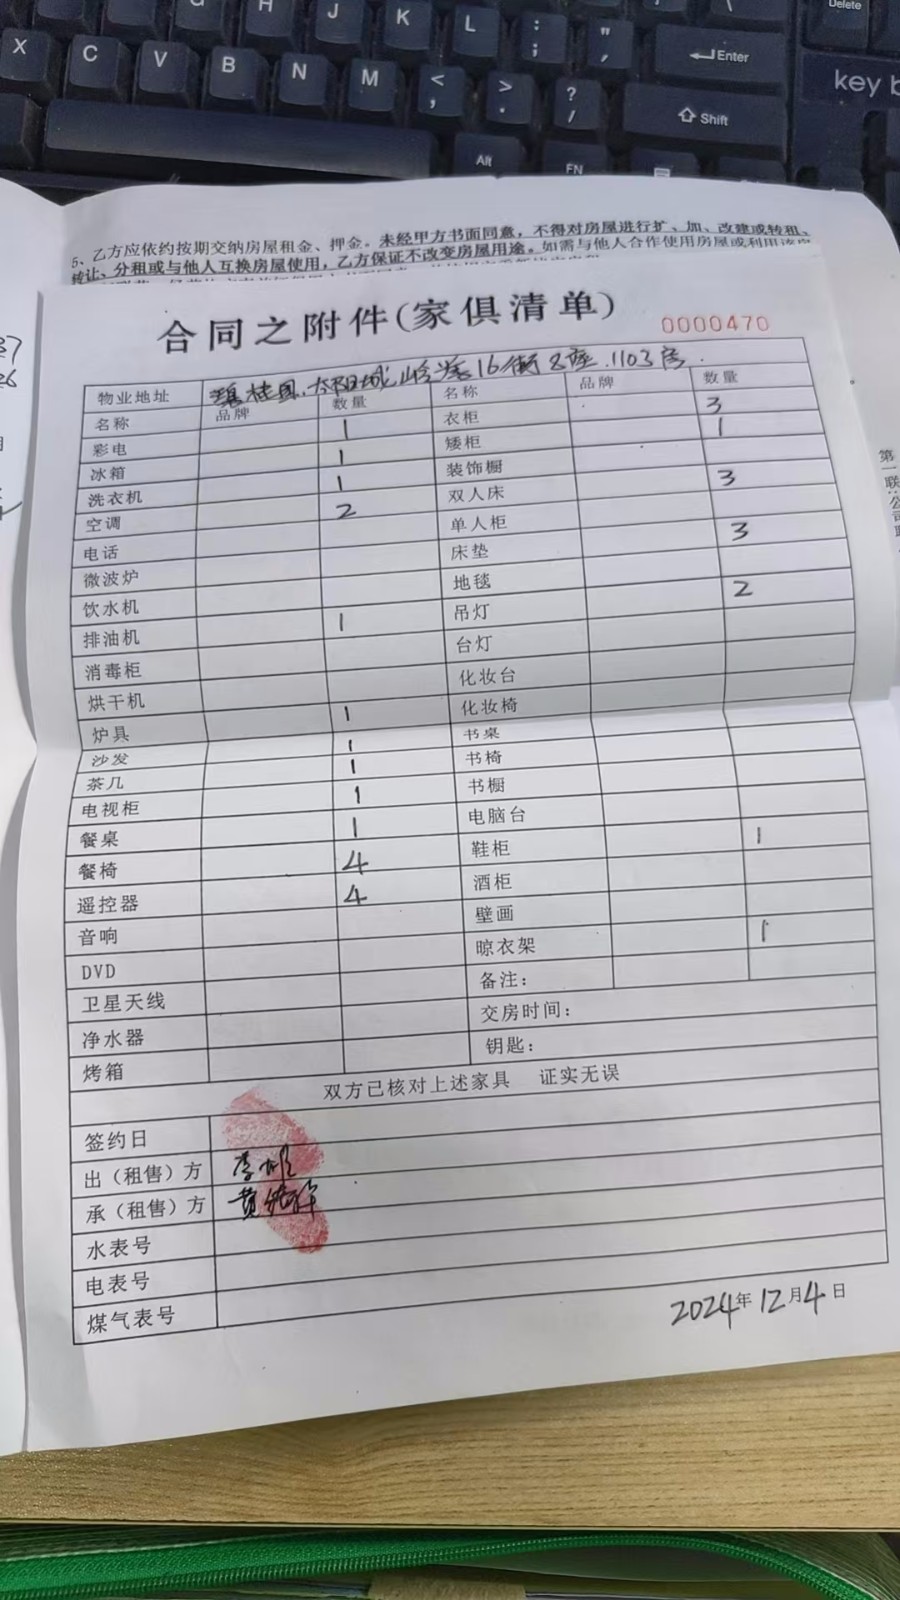 G H J K L : ; " ' Enter Delete
X C V B N M < , > . ? / Shift key
Alt FN
5、乙方应依约按期交纳房屋租金、押金。未经甲方书面同意，不得对房屋进行扩、加、改建或转租、
转让、分租或与他人互换房屋使用，乙方保证不改变房屋用途。如需与他人合作使用房屋或利用该房
合同之附件(家俱清单)
0000470
物业地址 碧桂园.太阳城 16街8座.1103房.
名称 品牌 数量 名称 品牌 数量
彩电 1 衣柜 3
冰箱 1 矮柜 1
洗衣机 1 装饰橱
空调 2 双人床 3
电话 单人柜
微波炉 床垫 3
饮水机 地毯
排油机 1 吊灯 2
消毒柜 台灯
烘干机 化妆台
炉具 1 化妆椅
沙发 1 书桌
茶几 1 书椅
电视柜 1 书橱
餐桌 1 电脑台
餐椅 4 鞋柜 1
遥控器 4 酒柜
音响 壁画
DVD 晾衣架 1
卫星天线 备注：
净水器 交房时间：
烤箱 钥匙：
双方已核对上述家具 证实无误
签约日
出（租售）方 李
承（租售）方 黄
水表号
电表号
煤气表号
2024年12月4日
第一联:公司